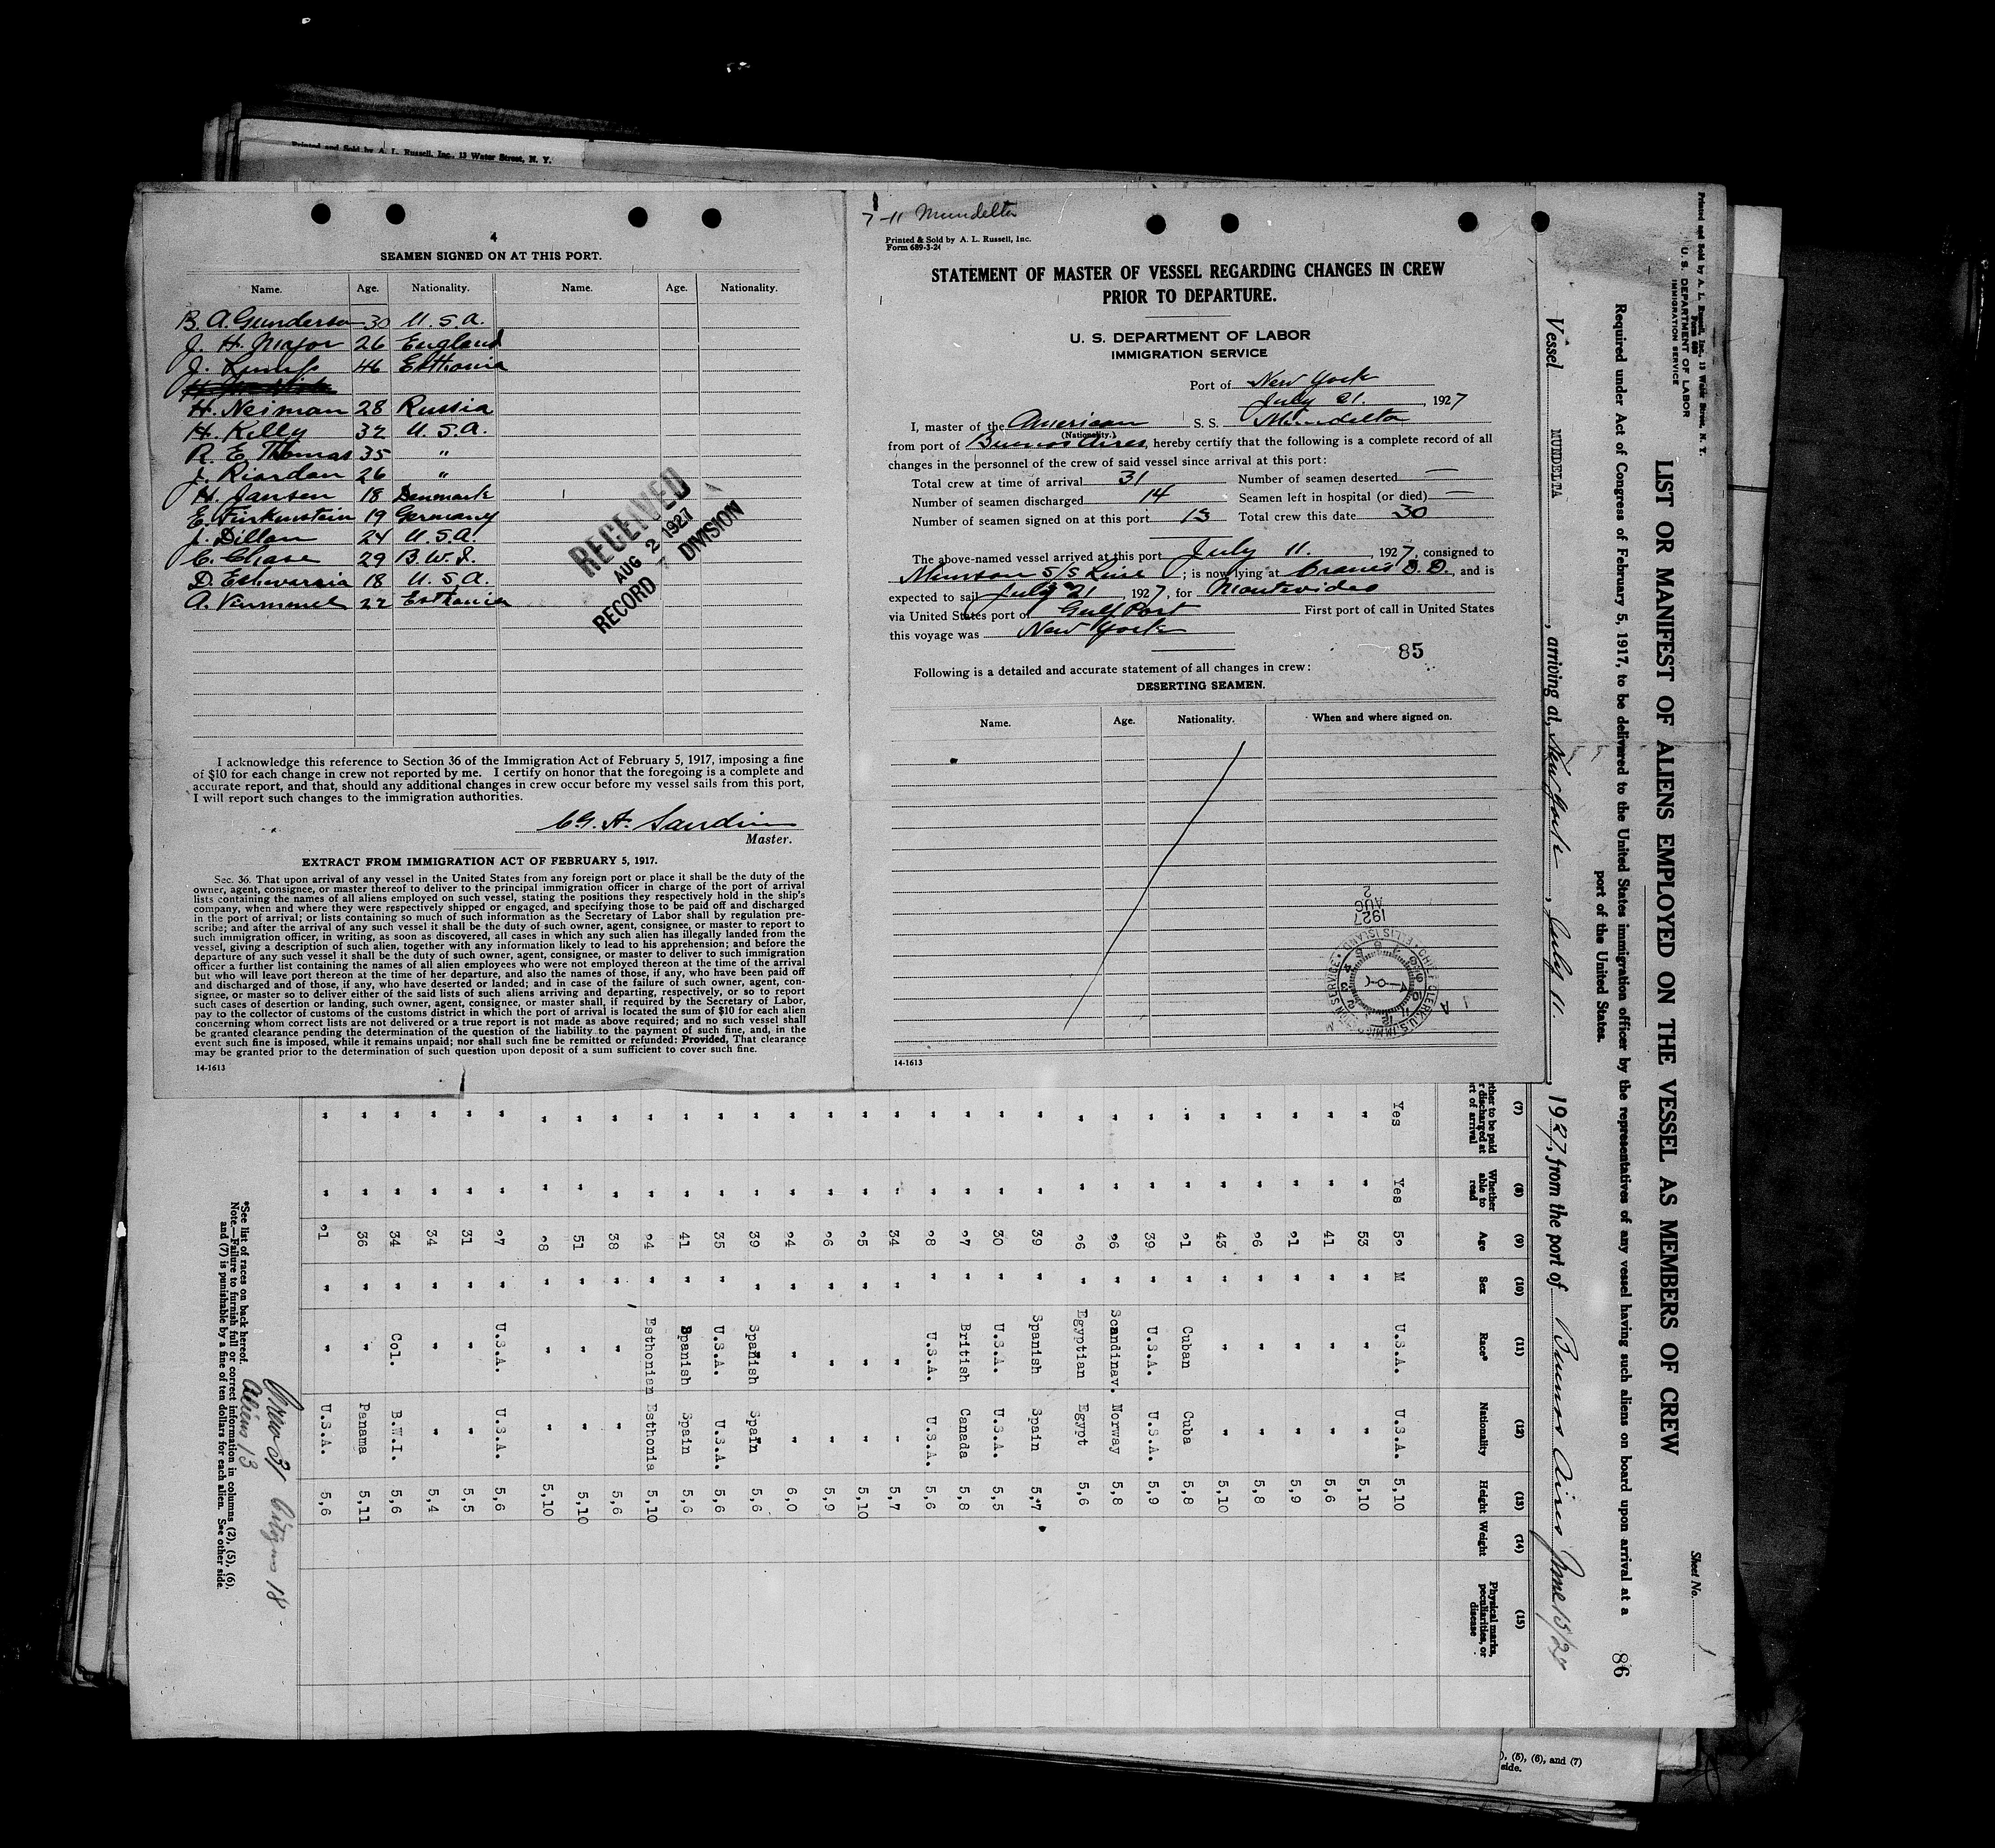 Printed and Sold by A. L. Russell, Inc., 13 Water Street, N. Y.
4
SEAMEN SIGNED ON AT THIS PORT.
Name. Age. Nationality. Name. Age. Nationality.
B. A. Gunderson 30 U.S.A.
J. H. Major 26 England
J. 46 Esthonia
H. Neiman 28 Russia
H. Kelly 32 U.S.A.
R. E. Thomas 35 "
J. Riordan 26 "
H. Jansen 18 Denmark
E. Finkenstein 19 Germany
J. Dillon 24 U.S.A.
C. Chase 29 B.W.I.
D. Echevarria 18 U.S.A.
A. 22 Esthonia
RECEIVED
AUG 2 1927
RECORD DIVISION
I acknowledge this reference to Section 36 of the Immigration Act of February 5, 1917, imposing a fine
of $10 for each change in crew not reported by me. I certify on honor that the foregoing is a complete and
accurate report, and that, should any additional changes in crew occur before my vessel sails from this port,
I will report such changes to the immigration authorities.
Master.
EXTRACT FROM IMMIGRATION ACT OF FEBRUARY 5, 1917.
Sec. 36. That upon arrival of any vessel in the United States from any foreign port or place it shall be the duty of the
owner, agent, consignee, or master thereof to deliver to the principal immigration officer in charge of the port of arrival
lists containing the names of all aliens employed on such vessel, stating the positions they respectively hold in the ship's
company, when and where they were respectively shipped or engaged, and specifying those to be paid off and discharged
in the port of arrival; or lists containing so much of such information as the Secretary of Labor shall by regulation pre-
scribe; and after the arrival of any such vessel it shall be the duty of such owner, agent, consignee, or master to report to
such immigration officer, in writing, as soon as discovered, all cases in which any such alien has illegally landed from the
vessel, giving a description of such alien, together with any information likely to lead to his apprehension; and before the
departure of any such vessel it shall be the duty of such owner, agent, consignee, or master to deliver to such immigration
officer a further list containing the names of all alien employees who were not employed thereon at the time of the arrival
but who will leave port thereon at the time of her departure, and also the names of those, if any, who have been paid off
and discharged and of those, if any, who have deserted or landed; and in case of the failure of such owner, agent, con-
signee, or master so to deliver either of the said lists of such aliens arriving and departing, respectively, or so to report
such cases of desertion or landing, such owner, agent, consignee, or master shall, if required by the Secretary of Labor,
pay to the collector of customs of the customs district in which the port of arrival is located the sum of $10 for each alien
concerning whom correct lists are not delivered or a true report is not made as above required; and no such vessel shall
be granted clearance pending the determination of the question of the liability to the payment of such fine, and, in the
event such fine is imposed, while it remains unpaid; nor shall such fine be remitted or refunded: Provided, That clearance
may be granted prior to the determination of such question upon deposit of a sum sufficient to cover such fine.
14-1613
7-11 Mundelta
Printed & Sold by A. L. Russell, Inc.
Form 689-3-24
STATEMENT OF MASTER OF VESSEL REGARDING CHANGES IN CREW
PRIOR TO DEPARTURE.
U. S. DEPARTMENT OF LABOR
IMMIGRATION SERVICE
Port of New York
July 21, 1927
I, master of the American S. S. Mundelta
(Nationality.)
from port of Buenos Aires, hereby certify that the following is a complete record of all
changes in the personnel of the crew of said vessel since arrival at this port:
Total crew at time of arrival 31 Number of seamen deserted —
Number of seamen discharged 14 Seamen left in hospital (or died) —
Number of seamen signed on at this port 13 Total crew this date 30
The above-named vessel arrived at this port July 11, 1927, consigned to
Munson S/S Line; is now lying at Cranes D. D., and is
expected to sail July 21, 1927, for Montevideo
via United States port of Gulf Port First port of call in United States
this voyage was New York
85
Following is a detailed and accurate statement of all changes in crew:
DESERTING SEAMEN.
Name. Age. Nationality. When and where signed on.
AUG 2
1927
CHIEF CLERK, U.S. IMMIGRATION SERVICE • ELLIS ISLAND •
14-1613
Printed and Sold by A. L. Russell, Inc., 13 Water Street, N. Y.
Form 689
U. S. DEPARTMENT OF LABOR
IMMIGRATION SERVICE
Sheet No. 1
LIST OR MANIFEST OF ALIENS EMPLOYED ON THE VESSEL AS MEMBERS OF CREW
Required under Act of Congress of February 5, 1917, to be delivered to the United States immigration officer by the representatives of any vessel having such aliens on board upon arrival at a
port of the United States.
86
Vessel MUNDELTA, arriving at New York, July 11, 1927, from the port of Buenos Aires June 15/27
(7) (8) (9) (10) (11) (12) (13) (14) (15)
ther to be paid
r discharged at
rt of arrival
Whether able to read
Age Sex Race* Nationality Height Weight
Physical marks, peculiarities, or disease
Yes Yes 52 M U.S.A. U.S.A. 5,10
" " 53 " " " 5,10
" " 41 " " " 5,6
" " 21 " " " 5,9
" " 26 " " " 5,8
" " 43 " " " 5,10
" " 21 " Cuban Cuba 5,8
" " 39 " U.S.A. U.S.A. 5,9
" " 26 " Scandinav. Norway 5,8
" " 26 " Egyptian Egypt 5,6
" " 39 " Spanish Spain 5,7
" " 30 " U.S.A. U.S.A. 5,5
" " 27 " British Canada 5,8
" " 28 " U.S.A. U.S.A. 5,6
" " 34 " " " 5,7
" " 25 " " " 5,10
" " 26 " " " 5,9
" " 24 " " " 6,0
" " 39 " Spanish Spain 5,6
" " 35 " U.S.A. U.S.A. 5,6
" " 41 " Spanish Spain 5,6
" " 24 " Esthonian Esthonia 5,10
" " 38 " " " 5,6
" " 51 " " " 5,10
" " 28 " " " 5,10
" " 27 " U.S.A. U.S.A. 5,6
" " 31 " " " 5,5
" " 34 " " " 5,4
" " 34 " Col. B.W.I. 5,6
" " 36 " " Panama 5,11
" " 21 " " U.S.A. 5,6
Crew 31 Citizens 18
Aliens 13
*See list of races on back hereof.
Note.—Failure to furnish full or correct information in columns (2), (5), (6),
and (7) is punishable by a fine of ten dollars for each alien. See other side.
), (5), (6), and (7)
side.